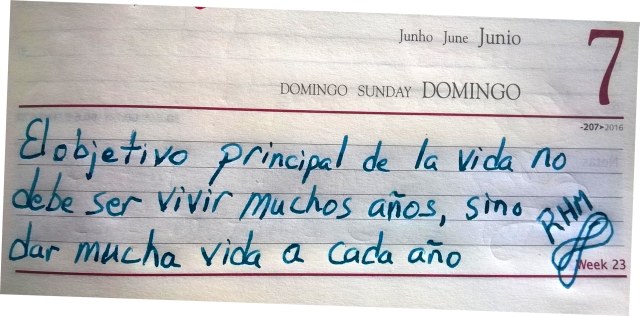 Junho June Junio
7
DOMINGO SUNDAY DOMINGO
-207▸2016
El objetivo principal de la vida no
debe ser vivir muchos años, sino
dar mucha vida a cada año
RHM
Week 23